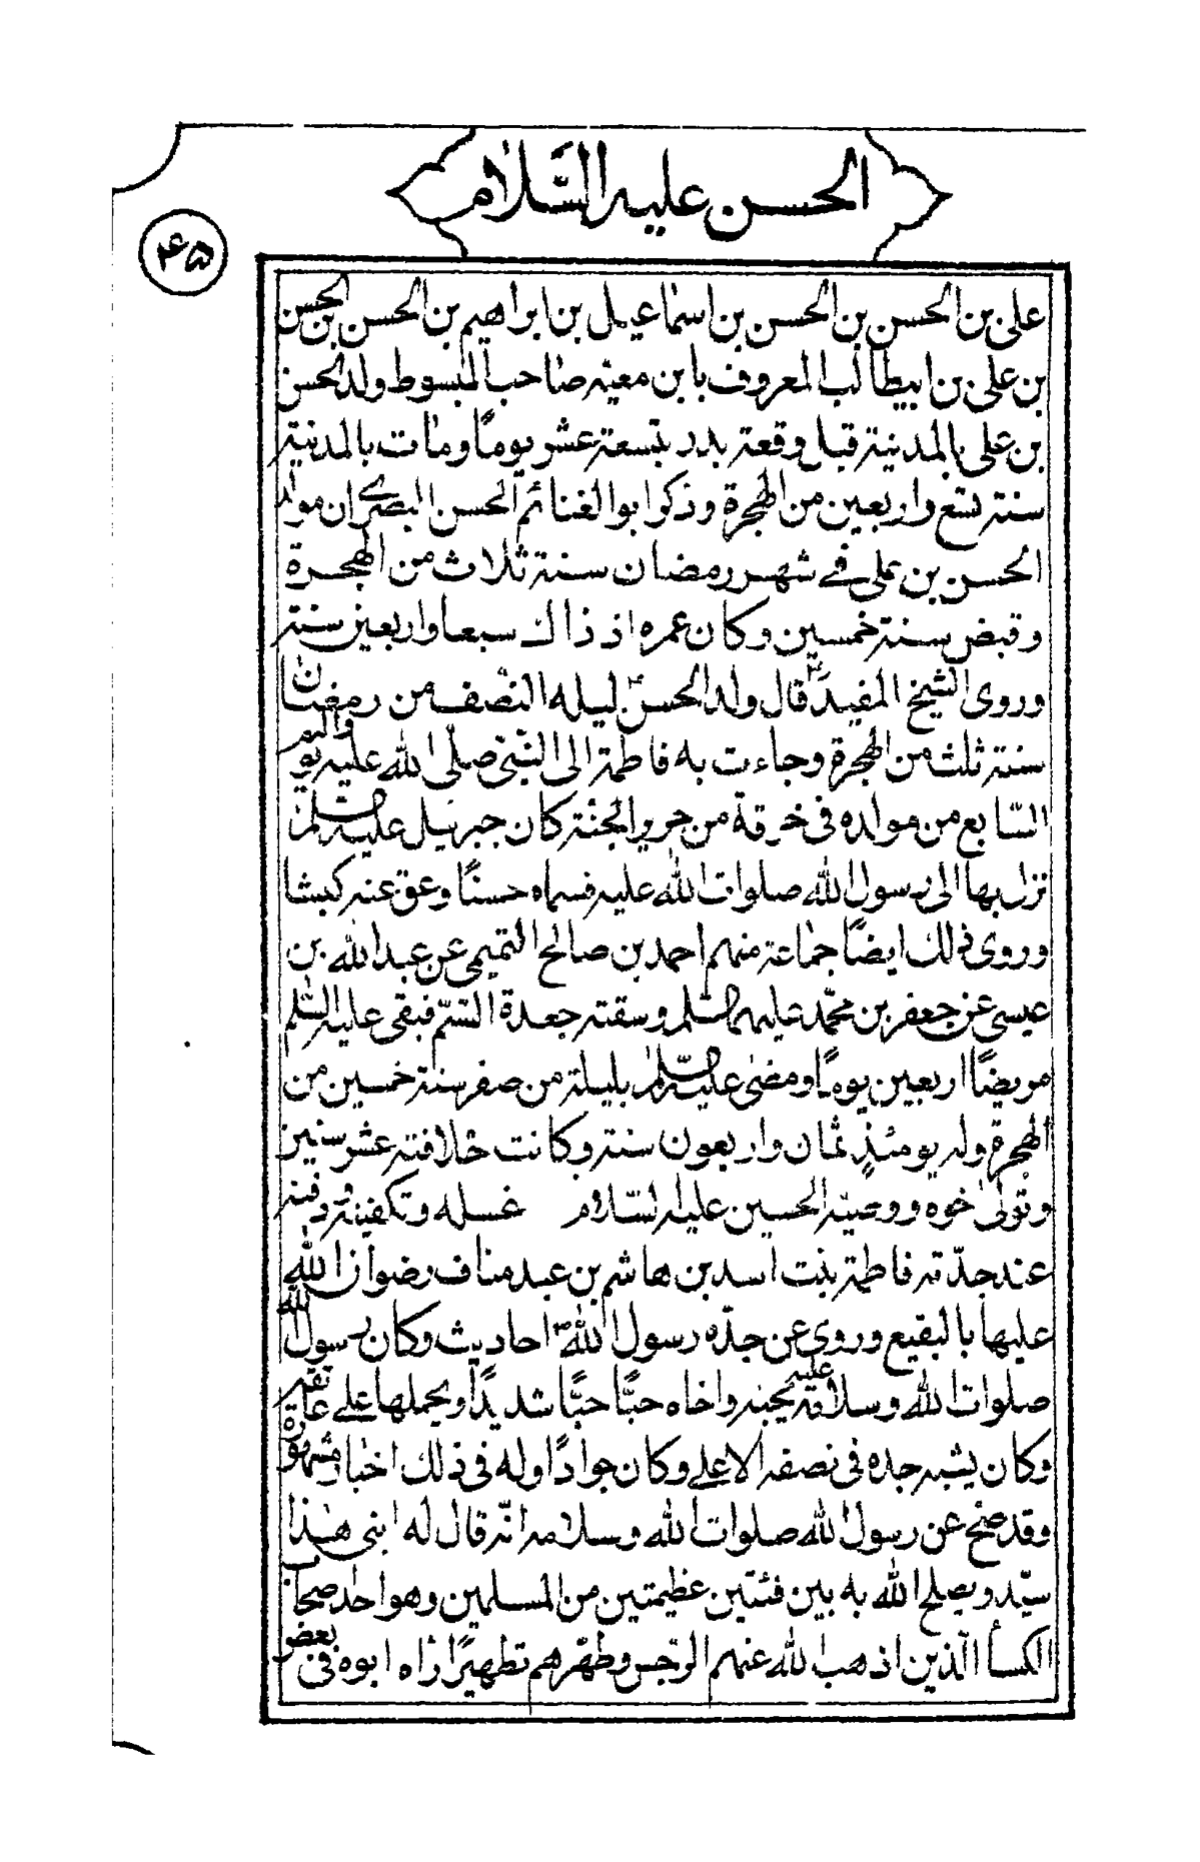 الحسن عليه السَّلام
٤٥
على بن الحسن بن الحسن بن اسماعيل بن ابراهيم بن الحسن بن الحسن
بن على بن ابيطالب المعروف بابن معيّه صاحب المبسوط ولد الحسن
بن على بالمدينة قبل وقعة بدر بتسعة عشر يومًا ومات بالمدينة
سنة تسع واربعين من الهجرة وذكر ابو الغنائم الحسن البصرى ان مولد
الحسن بن على فى شهر رمضان سنة ثلاث من الهجرة
وقبض سنة خمسين وكان عمره اذ ذاك سبعا واربعين سنة
وروى الشيخ المفيد قال ولد الحسن ليله النّصف من رمضان
سنة ثلث من الهجرة وجاءت به فاطمة الى النّبىّ صلّى الله عليه واله يوم
السّابع من مولده فى خرقة من حرير الجنّة كان جبرئيل عليه السّلم
نزل بها الى رسول الله صلوات الله عليه فسماه حسنًا وعق عنه كبشا
وروى ذلك ايضًا جماعة منهم احمد بن صالح التميمى عن عبد الله بن
عيسى عن جعفر بن محمّد عليهما السّلم وسقته جعدة السّمّ فبقى عليه السّلم
مريضًا اربعين يومًا ومضى عليه السّلم بليلة من صفر سنة خمسين من
الهجرة وله يومئذٍ ثمان واربعون سنة وكانت خلافته عشر سنين
وتولّى اخوه ووصيّه الحسين عليه السّلام غسله وتكفينه ودفنه
عند جدّته فاطمة بنت اسد بن هاشم بن عبد مناف رضوان الله
عليها بالبقيع وروى عن جدّه رسول الله ص احاديث وكان رسول الله
صلوات الله وسلامه عليه يحبّه واخاه حبًّا حبًّا شديدًا ويحملها على عاتقه
وكان يشبه جده فى نصفه الاعلى وكان جوادًا وله فى ذلك اخبار مشهورة
وقد صحّ عن رسول الله صلوات الله وسلامه انّه قال له ابنى هذا
سيّد ويصلح الله به بين فئتين عظيمتين من المسلمين وهو احد اصحاب
الكسأ الّذين اذهب الله عنهم الرّجس وطهّرهم تطهيرًا راه ابوه فى بعض